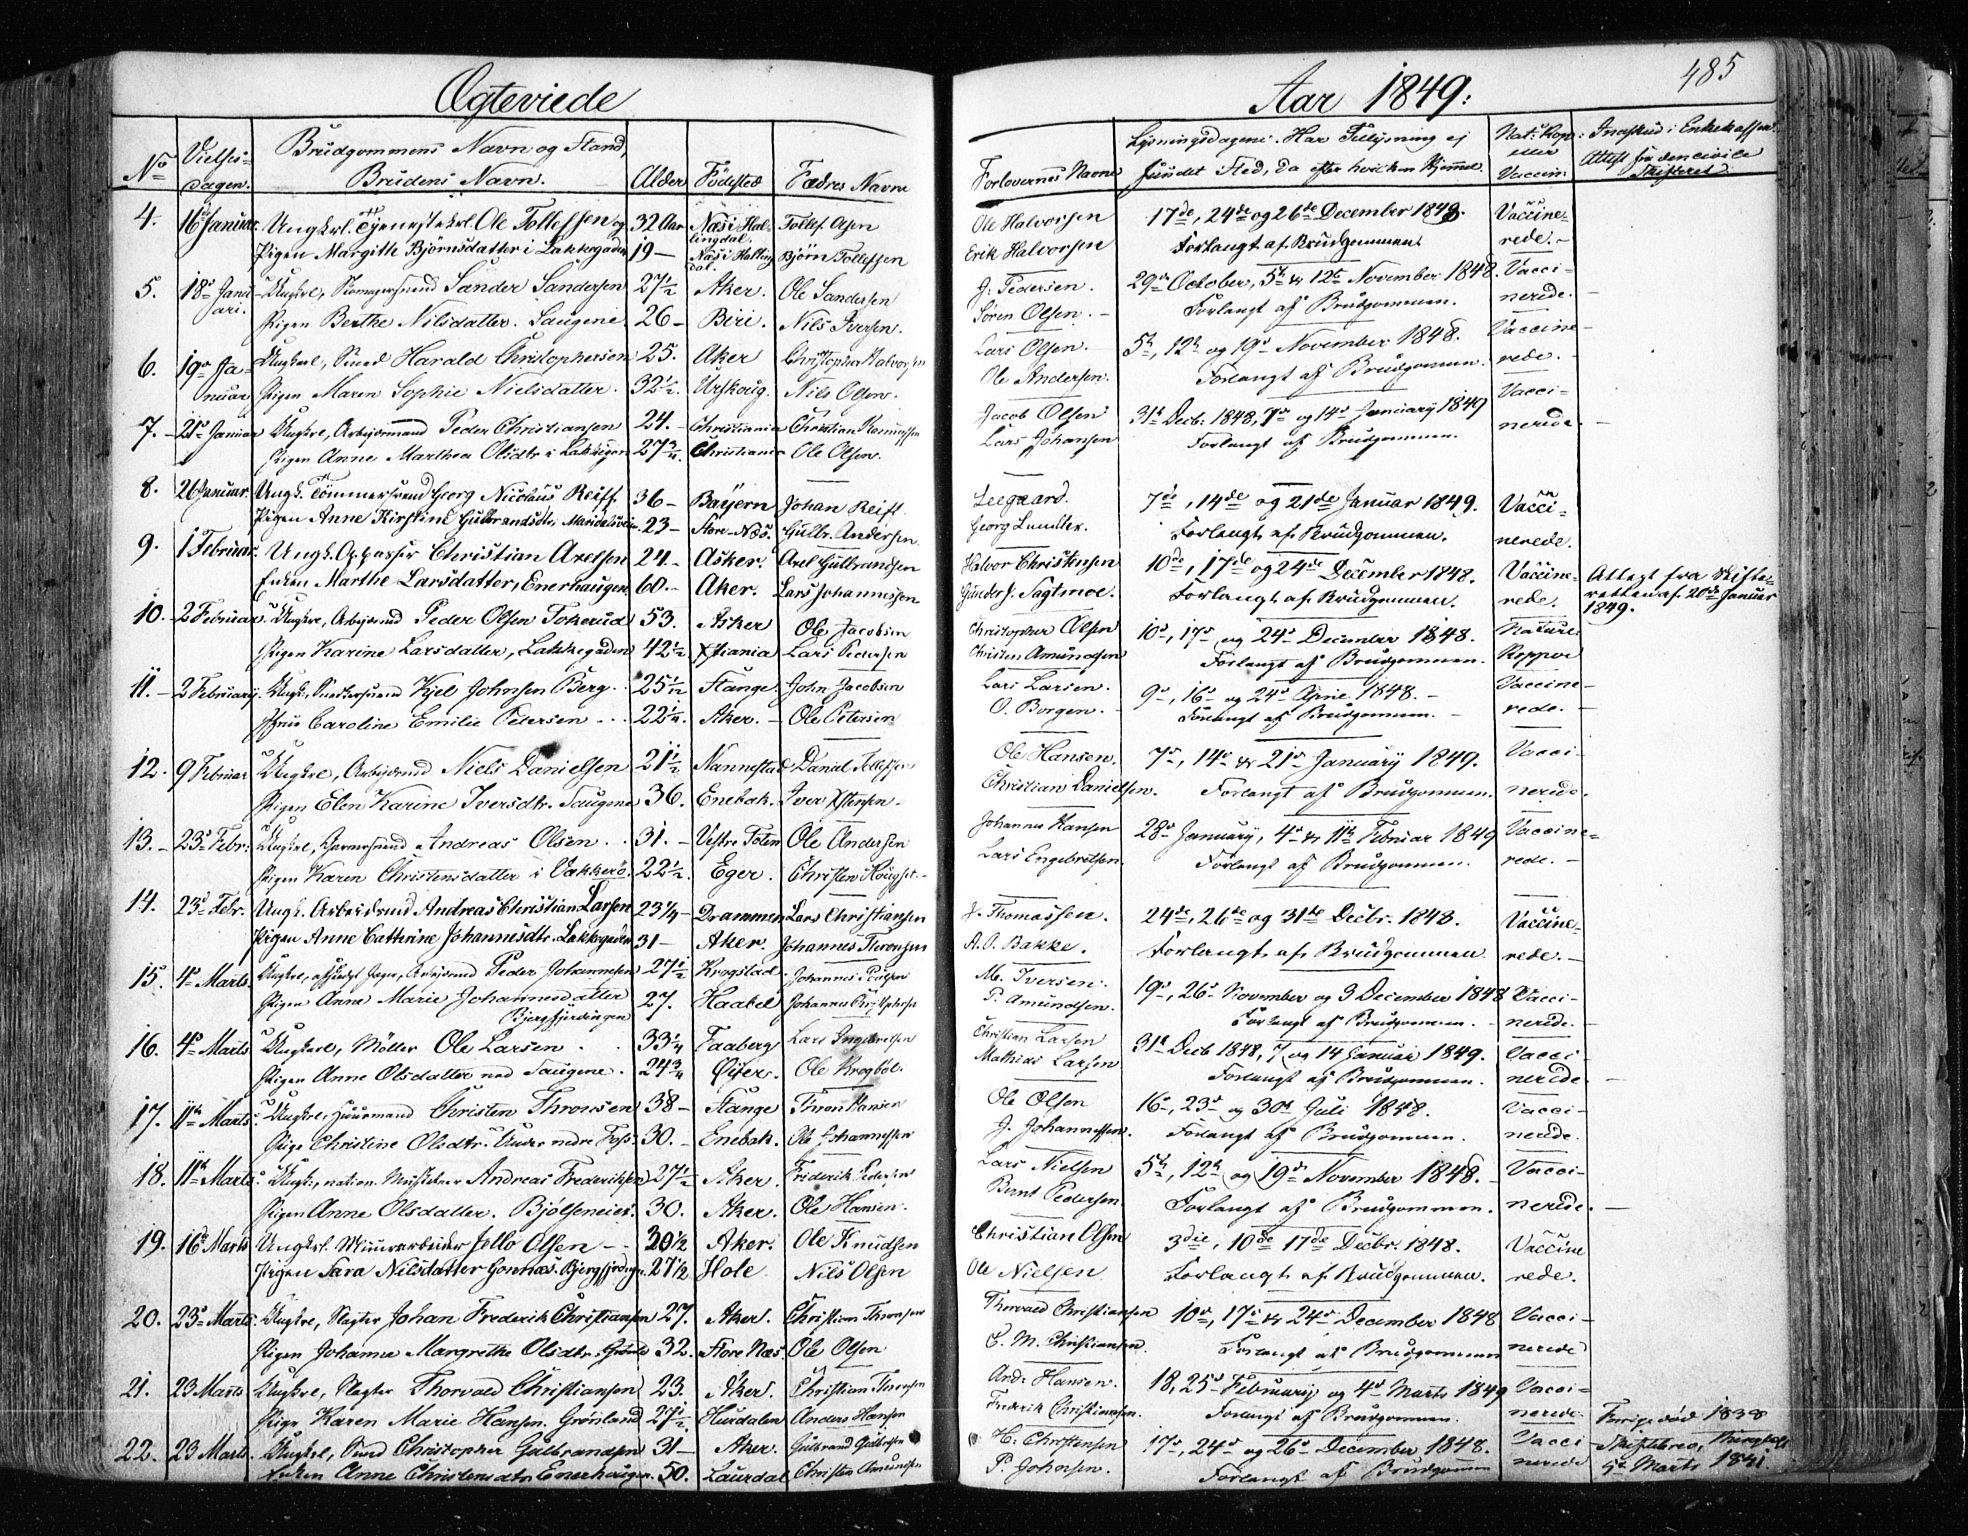 Ægteviede
Aar 1849:
485
No
Vielses-
dagen.
Brudgommens Navn og Stand,
Brudens Navn.
Alder
Födested
Fædres Navne
Forlovernes Navne
Lysningsdagene. Har Tillysning ej
fundet Sted, da efter hvilken Hjemmel
Nat: Kop:
eller
Vaccin:
Indskud i Enkekassen.
Attest fra den civile
Skifteret
4. 16de Januar. Ungkrl. Tjenestekrl. Ole Tollefsen og 32 Aar Næs i Hal- Tollef Olsen Ole Halvorsen 17de, 24de og 26de December 1848. Vaccine-
lingdal.
Pigen Margith Björnsdatter i Lakkegaden 19 — Næs i Halling Björn Tollefsen Erik Halvorsen Forlangt af Brudgommen. rede. -
dal.
5. 18de Janu- Ungkrl, Sander Sandersen 27½ Aker. Ole Sandersen J. Pedersen. 29de October, 5te & 12te November 1848. Vacci-
ari. Pigen Berthe Nilsdatter. Saugene. 26 - Biri. Nils Iversen. Sören Olsen. - Forlangt af Brudgommen. nerede.
6. 19de Ja- Ungkrl, Smed Harald Christophersen 25. Aker Christopher Halvorsen Lars Olsen. 5te, 12te og 19de November 1848. Vaccine-
nuar Pigen Maren Sophie Nielsdatter. 32½. Urskoug. Nils Olsen. Ole Andersen. Forlangt af Brudgommen. rede. -
7. - 21de Januar Ungkrl, Arbejdsmand Peder Christiansen 24. - Christiania Christian Jacob Olsen 31te Decb: 1848, 7de og 14de January 1849 Vacci-
Pigen Anne Marthea Olsdtr i Lakkegaden 27¾. Christiania Ole Olsen. Lars Johansen Forlangt af Brudgommen. nerede.
8. 26 Januar. Ungk. Tömmersvend Georg Nicolaus Reiff. 36 - Bayern Johan Reiff Leegaard. 7de, 14de og 21de Januar 1849. Vacci-
Pigen Anne Kirstine Gulbrandsdtr, Maridalsvein. 23 - Store-Næs. Gulbr. Andersen. Georg Lunder. Forlangt af Brudgommen. nerede.
9. 1 Februar. Ungk. Oppasser Christian Axelsen 24. - Asker. Axel Gulbrandsen Halvor Christensen 10de, 17de og 24de December 1848. Vaccine- Attest fra Skifte-
Enken Marthe Larsdatter, Enerhaugen 60. - Aker. Lars Johannessen Gunder S. Sagtmoe. Forlangt af Brudgommen. rede. retten af 20de Januar
1849.
10. - 2 Februar. Ungkrl, Arbejdsmd Peder Olsen Tokerud 53. Asker Ole Jacobsen Christopher Olsen 10de, 17de og 24de December 1848. Naturl:
Pigen Karine Larsdatter, Lakkegaden 42½ Xstiania Lars Pedersen Christen Amundsen Forlangt af Brudgommen. Kopper
11. - 2 February. Ungk., Snedkersvend Kjel Johnsen Berg. 25 1/12 Stange. John Jacobsen Lars Larsen. 9de, 16de og 24de April 1848. - Vaccine-
Caroline Emilie Petersen - 22¼. Aker. - Ole Petersen O. Borgen. - Forlangt af Brudgommen. - rede. -
12. 9 Februar Ungkrl, Arbejdsmd Niels Danielsen 21½ Nannestad Daniel Ole Hansen. 7de, 14de & 21de January 1849. Vacci-
Pigen Elen Karine Iversdtr. Saugene 36. Enebak. Iver Xstensen. Christian Danielsen. Forlangt af Brudgommen. nerede.
13. - 23de Febr: Ungkrl, Andreas Olsen. 31. - Vestre Toten Ole Andersen Johannes Hansen 28de January, 4de & 11te Februar 1849 Vaccine-
Pigen Karen Christensdatter i Vækkerö. 22½. Eger. Christen Lars Engebretsen. Forlangt af Brudgommen. rede. -
14. 23de Febr. Ungk. Arbeidsmd Andreas Christian Larsen 23¼ - Drammen Lars Christiansen J. Thomassen. 24de, 26de og 31te Decbr. 1848. Vaccine-
Pigen Anne Catterine Johannesdtr. Lakkegaden 31 - Aker. Johannes Thronsen A. O. Bakke. Forlangt af Brudgommen rede. -
15. 4de Marts. Ungkrl, Peder Johannesen 27½ Krogstad Johannes M. Iversen. 19de, 26de November og 3 December 1848 Vacci-
Pigen Anne Marie Johannesdatter 27. Haabel Johannes P. Amundsen. Forlangt af Brudgommen. - nerede. -
Bjergfjerdingen
16. 4de Marts Ungkarl, Möller Ole Larsen. 33¼ Faaberg Lars Ingebretsen Christian Larsen 31te Decb 1848, 7 og 14 Januar 1849. Vacci-
Pigen Anne Olsdatter ved Saugene. 24¾ Öyer. Ole Krogböl. Mathias Larsen Forlangt af Brudgommen. nerede.
17. 11te Marts. Ungkrl, Huusmand Christen Thronsen 38 - Stange Thron Hansen Ole Olsen 16de, 23de og 30te Juli 1848. Vacci-
Pige Christine Olsdtr. nedre Foss. 30. - Enebak. Ole Johannessen J. Johannessen. Forlangt af Brudgommen. nerede.
18. 11te Marts. Ungk., Andreas Frederiksen 27½ Aker. Friderik Pedersen Lars Nielsen 5te, 12te og 19de November 1848. Vacci-
Pigen Anne Olsdatter. Bjölseneiet. 30. Aker. Ole Hansen. Bernt Pedersen. Forlangt af Brudgommen. nerede.
19. 16de Marts Ungkrl. Muurarbeider Jello Olsen - 30½ Aker. Ole Knudsen Christian Olsen 3die, 10de 17de Decbr. 1848. Vaccine
Pigen Sara Nilsdatter Bjergfjerdingn. 27½ Hole Nils Olsen Ole Nielsen Forlangt af Brudgommen. rede.
20. 23de Marts. Ungkrl, Slagter Johan Frederik Christiansen 27. Aker. Christian Thronsen Thorvald Christiansen 10de, 17de & 24de December 1848 Vacci-
Pigen Johanne Margrethe Olsdtr. Grönld 32. Store Næs. Ole Olsen C. M. Christiansen. Forlangt af Brudgommen nerede
21. 23 Marts Ungkrl, Slagter Thorvald Christiansen 23. Aker. Christian Thronsen And: Hansen. 18, 25de February og 4de Marts 1849 Vacci-
Pige Karen Marie Hansen. Grönland 27½ Hurdalen Anders Hansen Frederik Christiansen. Forlangt af Brudgommen. nerede.
22. 23 Marts. Ungkrl, Smed Christopher Gulbrandsen 31 - Aker. Gulbrand Gulbrandsen H: Christensen 17de, 24de og 26de December 1848. Vacci död 1838
Enken Anne Christensdtr Enerhaugen. 50. Laurdal Christen Amundsen P. Johnsen. Forlangt af Brudgommen nerede Skiftebrev,
Marts 1841.